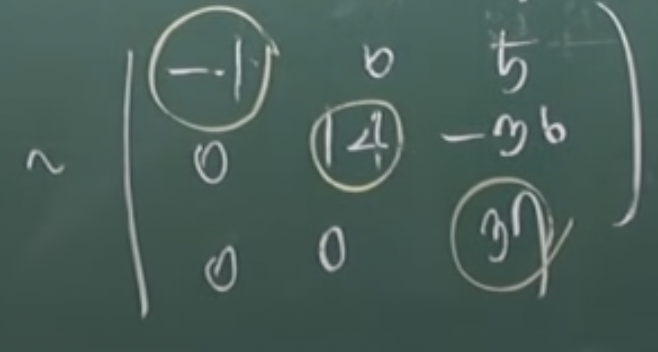 -1 6 5
~ 0 14 -36
0 0 37